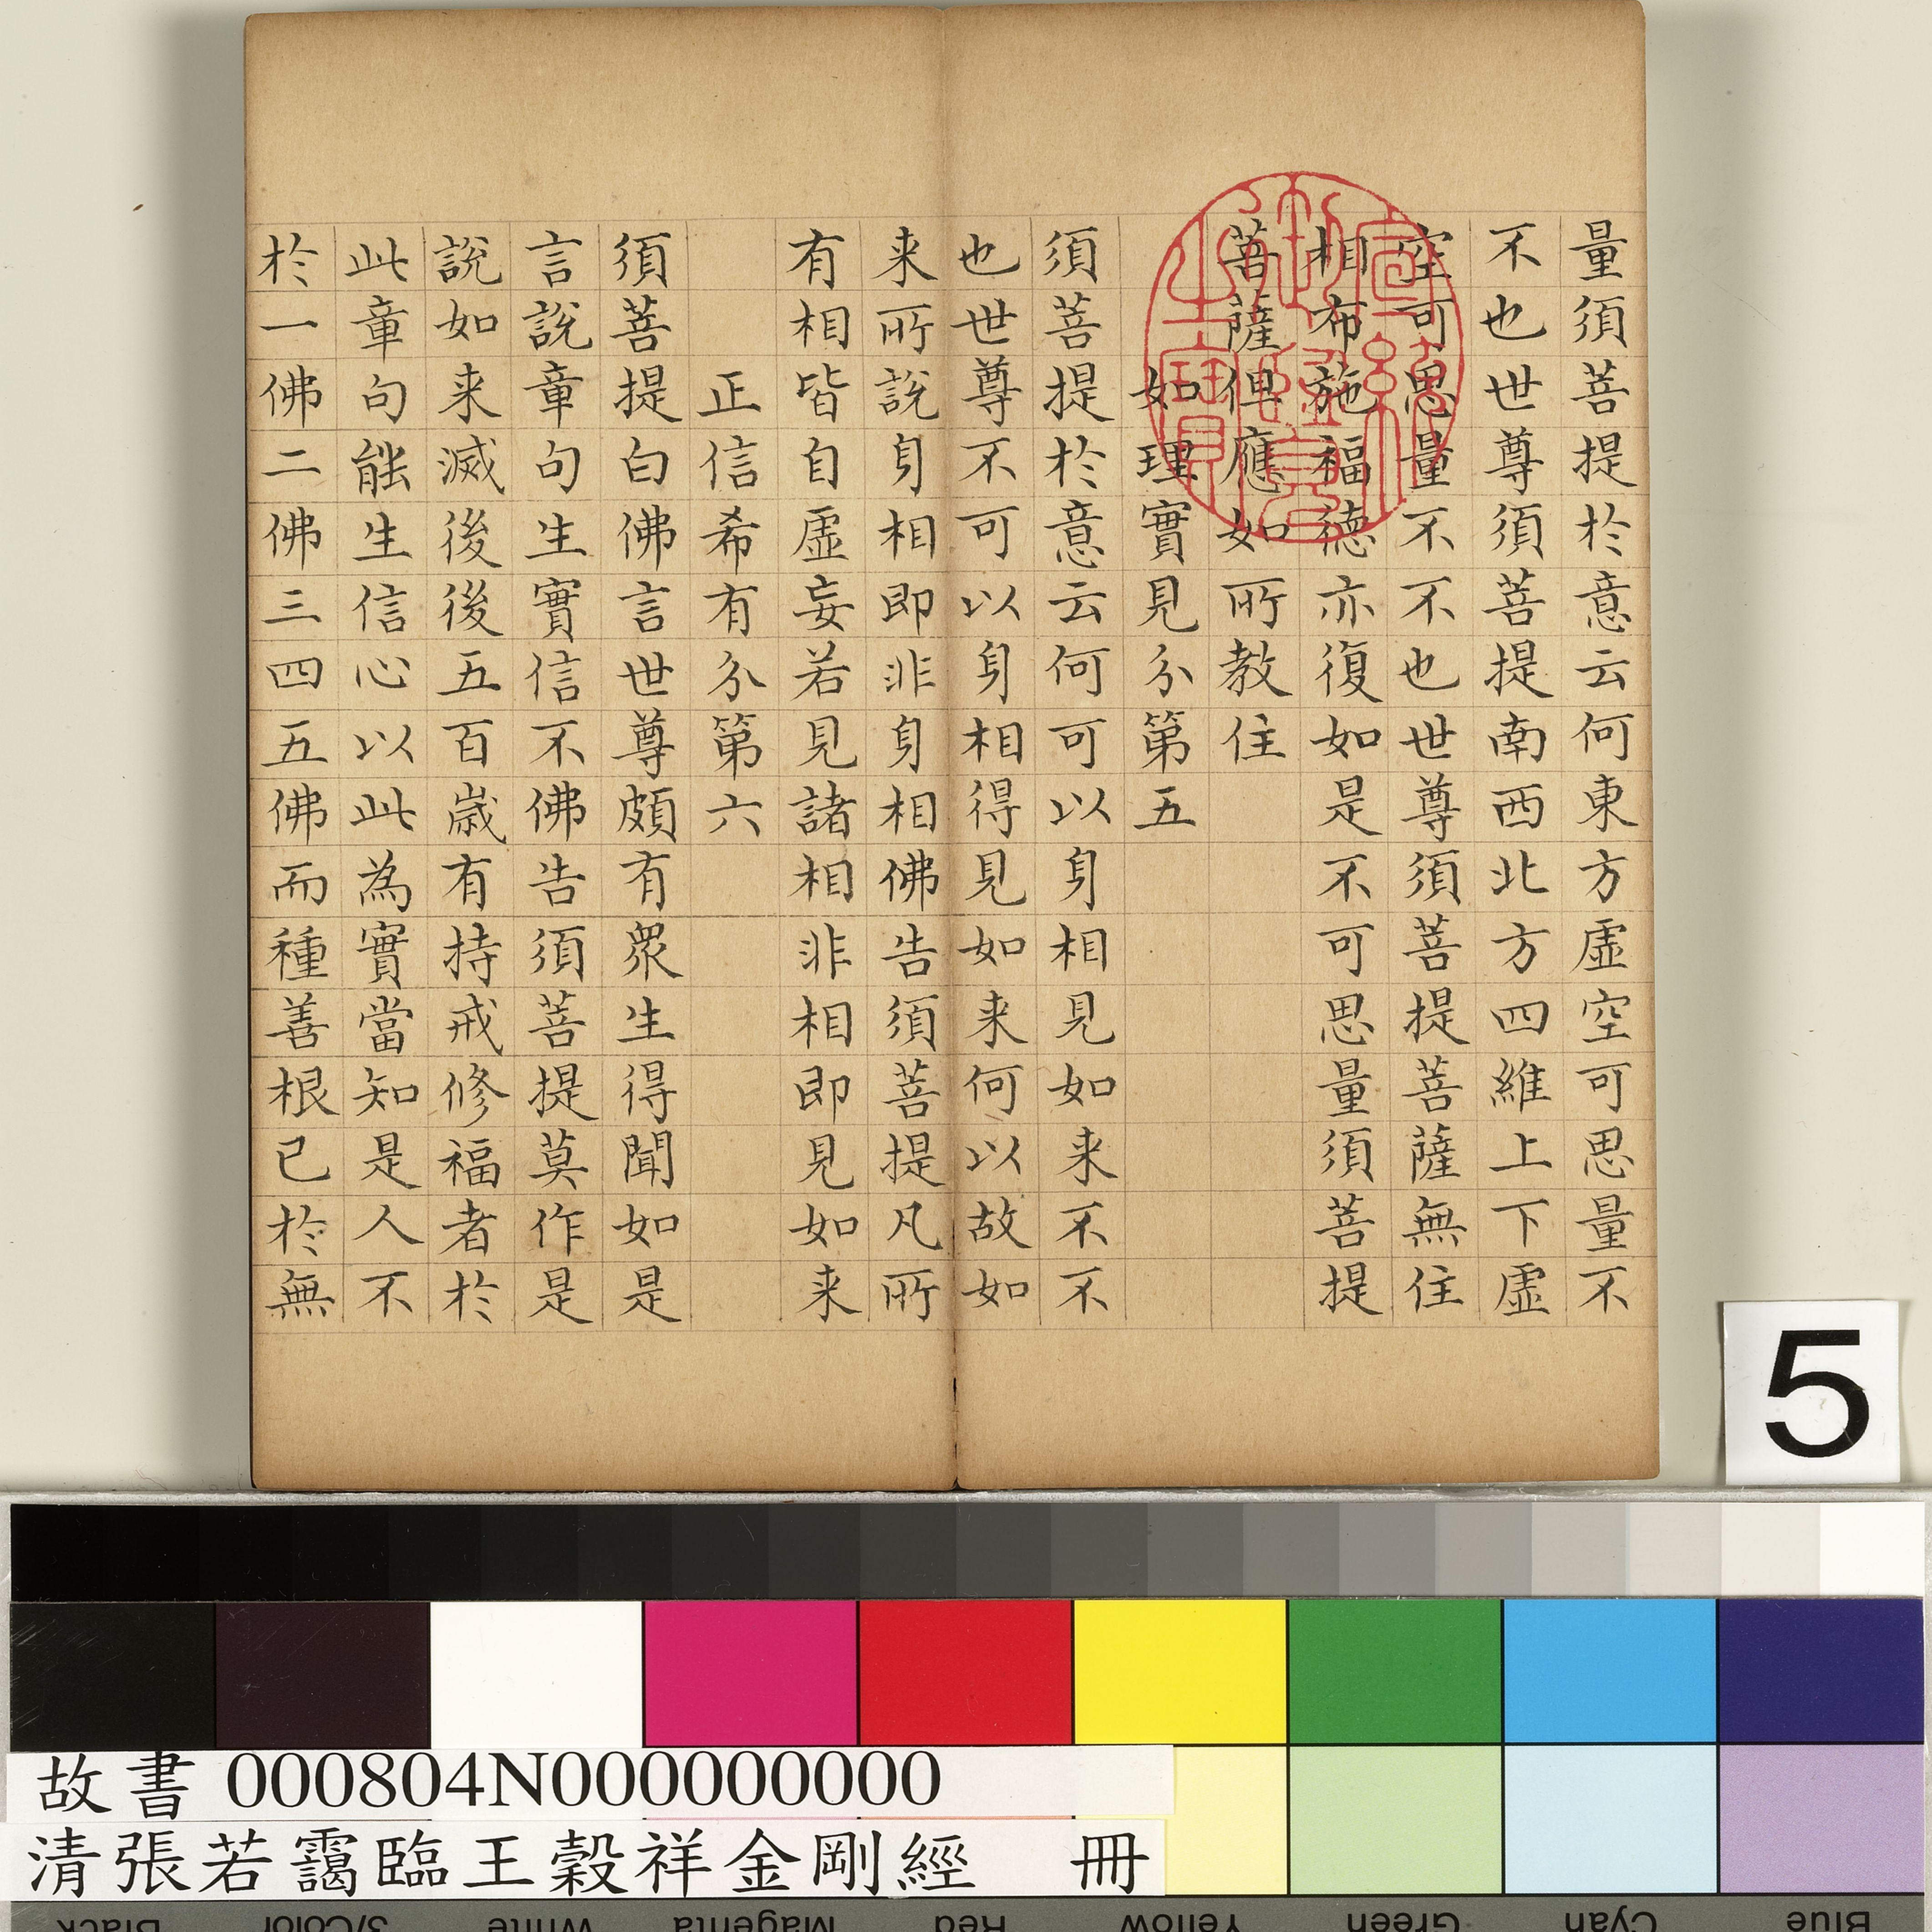 量須菩提於意云何東方虛空可思量不
不也世尊須菩提南西北方四維上下虛
空可思量不不也世尊須菩提菩薩無住
相布施福德亦復如是不可思量須菩提
菩薩但應如所教住
如理實見分第五
須菩提於意云何可以身相見如来不不
也世尊不可以身相得見如来何以故如
来所說身相即非身相佛告須菩提凡所
有相皆自虛妄若見諸相非相即見如来
正信希有分第六
須菩提白佛言世尊頗有眾生得聞如是
言說章句生實信不佛告須菩提莫作是
說如来滅後後五百歲有持戒修福者於
此章句能生信心以此為實當知是人不
於一佛二佛三四五佛而種善根已於無
5
故書 000804N000000000
清張若靄臨王穀祥金剛經 冊
Black 3/Color White Magenta Red Yellow Green Cyan Blue